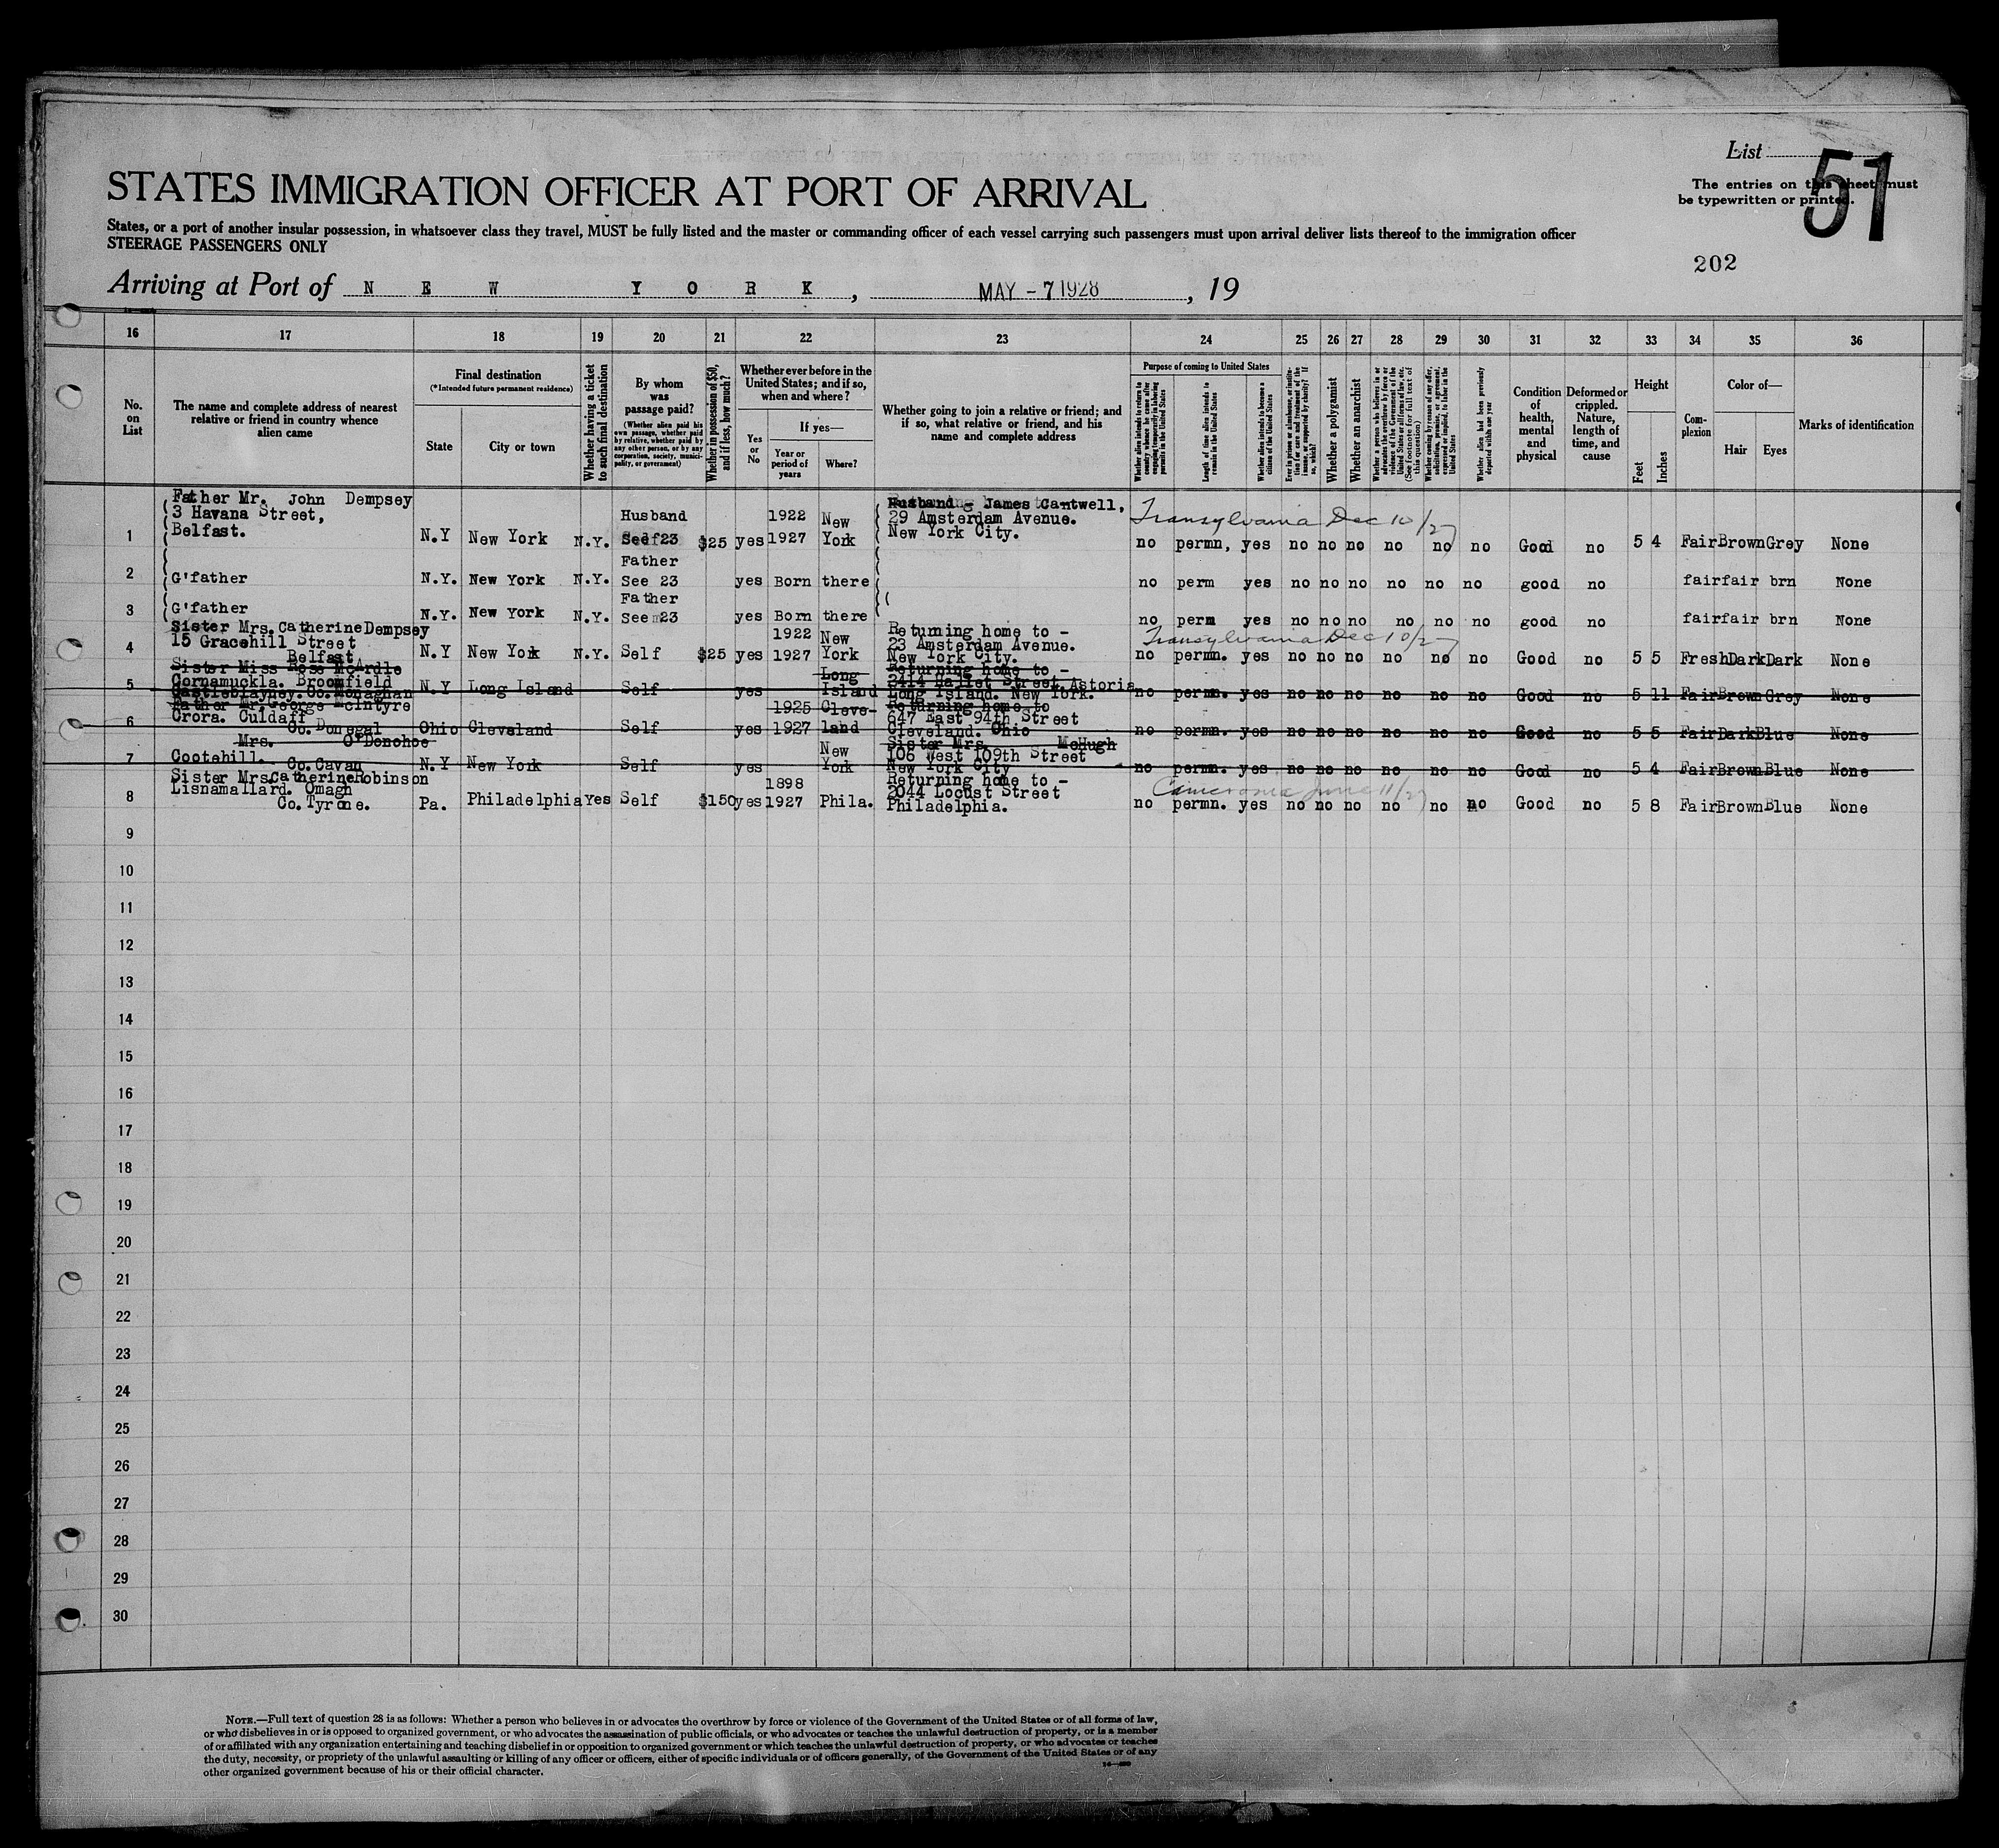 List
51
The entries on this sheet must
be typewritten or printed.
STATES IMMIGRATION OFFICER AT PORT OF ARRIVAL
States, or a port of another insular possession, in whatsoever class they travel, MUST be fully listed and the master or commanding officer of each vessel carrying such passengers must upon arrival deliver lists thereof to the immigration officer
STEERAGE PASSENGERS ONLY
202
Arriving at Port of NEW YORK, MAY - 7 1928, 19
16 17 18 19 20 21 22 23 24 25 26 27 28 29 30 31 32 33 34 35 36
No. on List
The name and complete address of nearest relative or friend in country whence alien came
Final destination
(*Intended future permanent residence)
State
City or town
Whether having a ticket to such final destination
By whom was passage paid?
(Whether alien paid his own passage, whether paid by relative, whether paid by any other person, or by any corporation, society, municipality, or government)
Whether in possession of $50, and if less, how much?
Whether ever before in the United States; and if so, when and where?
Yes or No
If yes—
Year or period of years
Where?
Whether going to join a relative or friend; and if so, what relative or friend, and his name and complete address
Purpose of coming to United States
Whether alien intends to return to country whence he came after engaging temporarily in laboring pursuits in the United States
Length of time alien intends to remain in the United States
Whether alien intends to become a citizen of the United States
Ever in prison or almshouse, or institution for care and treatment of the insane, or supported by charity? If so, which?
Whether a polygamist
Whether an anarchist
Whether a person who believes in or advocates the overthrow by force or violence of the Government of the United States or all forms of law, etc. (See footnote for full text of this question)
Whether coming by reason of any offer, solicitation, promise, or agreement, expressed or implied, to labor in the United States
Whether alien had been previously deported within one year
Condition of health, mental and physical
Deformed or crippled. Nature, length of time, and cause
Height
Feet
Inches
Complexion
Color of—
Hair
Eyes
Marks of identification
Father Mr. John Dempsey
3 Havana Street,
Belfast.
1 N.Y New York N.Y. Husband See 23 $25 yes 1922 1927 New York
Husband James Cantwell,
29 Amsterdam Avenue.
New York City.
Transylvania Dec 10/27
no permn, yes no no no no no no Good no 5 4 Fair Brown Grey None
2 G'father N.Y. New York N.Y. Father See 23 yes Born there no perm yes no no no no no no good no fair fair brn None
3 G'father N.Y. New York N.Y. Father See 23 yes Born there no perm yes no no no no no no good no fair fair brn None
Sister Mrs. Catherine Dempsey
15 Gracehill Street
Belfast
4 N.Y New York N.Y. Self $25 yes 1922 1927 New York
Returning home to -
23 Amsterdam Avenue.
New York City.
Transylvania Dec 10/27
no permn. yes no no no no no no Good no 5 5 Fresh Dark Dark None
Sister Miss Rose McArdle
Cornamuckla. Broomfield
Castleblayney. Co. Monaghan
5 N.Y Long Island Self yes Long Island
Returning home to -
2414 Hallet Street, Astoria
Long Island. New York.
no permn. yes no no no no no no Good no 5 11 Fair Brown Grey None
Father Mr. George McIntyre
Crora. Culdaff
Co. Donegal
6 Ohio Cleveland Self yes 1925 1927 Cleveland
Returning home to
647 East 94th Street
Cleveland. Ohio
no permn. yes no no no no no no Good no 5 5 Fair Dark Blue None
Mrs. O'Donohoe
Cootehill.
Co. Cavan
7 N.Y New York Self yes New York
Sister Mrs. McHugh
106 West 109th Street
New York City
no permn. yes no no no no no no Good no 5 4 Fair Brown Blue None
Sister Mrs Catherine Robinson
Lisnamallard. Omagh
Co. Tyrone.
8 Pa. Philadelphia Yes Self $150 yes 1898 1927 Phila.
Returning home to -
2044 Locust Street
Philadelphia.
Cameronia June 11/27
no permn. yes no no no no no no Good no 5 8 Fair Brown Blue None
9
10
11
12
13
14
15
16
17
18
19
20
21
22
23
24
25
26
27
28
29
30
NOTE.—Full text of question 28 is as follows: Whether a person who believes in or advocates the overthrow by force or violence of the Government of the United States or of all forms of law,
or who disbelieves in or is opposed to organized government, or who advocates the assassination of public officials, or who advocates or teaches the unlawful destruction of property, or is a member
of or affiliated with any organization entertaining and teaching disbelief in or opposition to organized government or which teaches the unlawful destruction of property, or who advocates or teaches
the duty, necessity, or propriety of the unlawful assaulting or killing of any officer or officers, either of specific individuals or of officers generally, of the Government of the United States or of any
other organized government because of his or their official character.